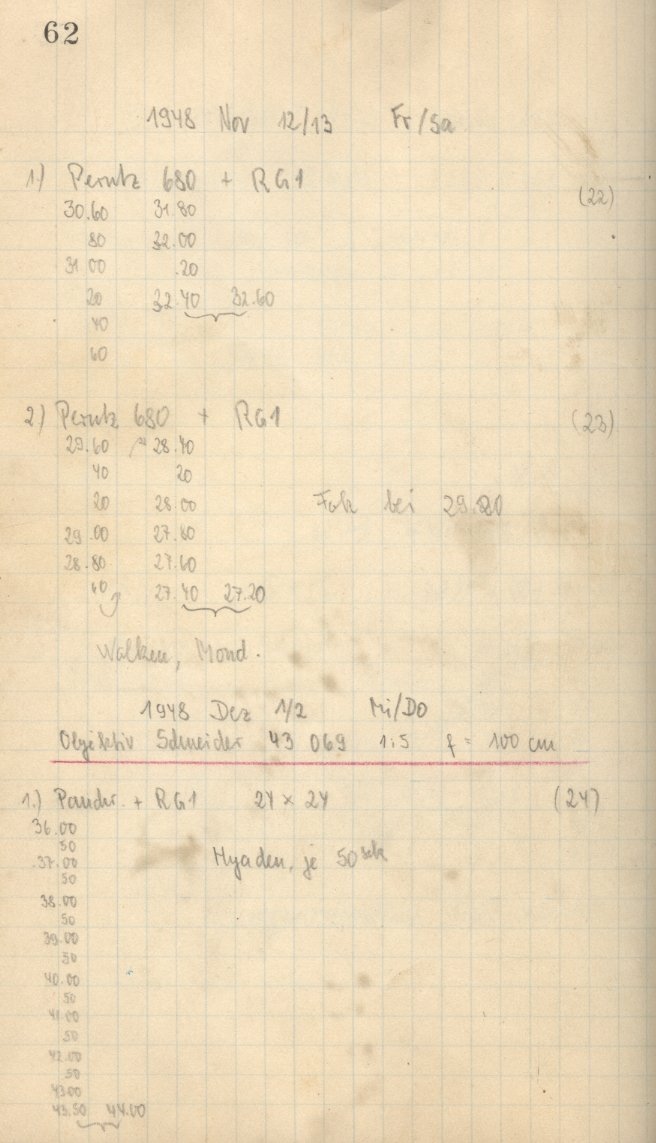 62
1948 Nov 12/13 Fr/Sa
1) Perutz 680 + RG1 (22)
30.60 31.80
80 32.00
31 00 .20
20 32.40 32.60
40
60
2) Perutz 680 + RG1 (23)
29.60 28.40
40 20
20 28 00 Fok bei 29.20
29 00 27.80
28.80 27.60
60 27.40 27.20
Wolken, Mond.
1948 Dez 1/2 Mi/Do
Objektiv Schneider 43 069 1:5 f = 100 cm
1.) Panchr. + RG1 24 × 24 (24)
36.00
50
37.00 Hyaden, je 50 sek
50
38.00
50
39.00
50
40.00
50
41 00
50
42.00
50
43.00
43.50 44.00